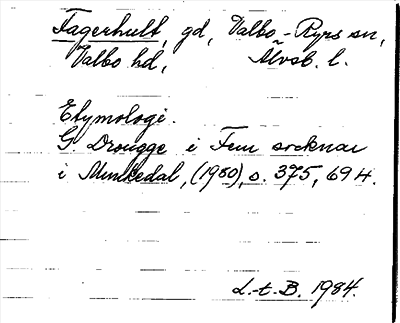 Fagerhult, gd, Valbo-Ryrs sn,
Valbo hd, Älvsb. l.
Etymologi.
G. Drougge i Fem socknar
i Munkedal, (1980), s. 375, 694.
L.-t. B. 1984.